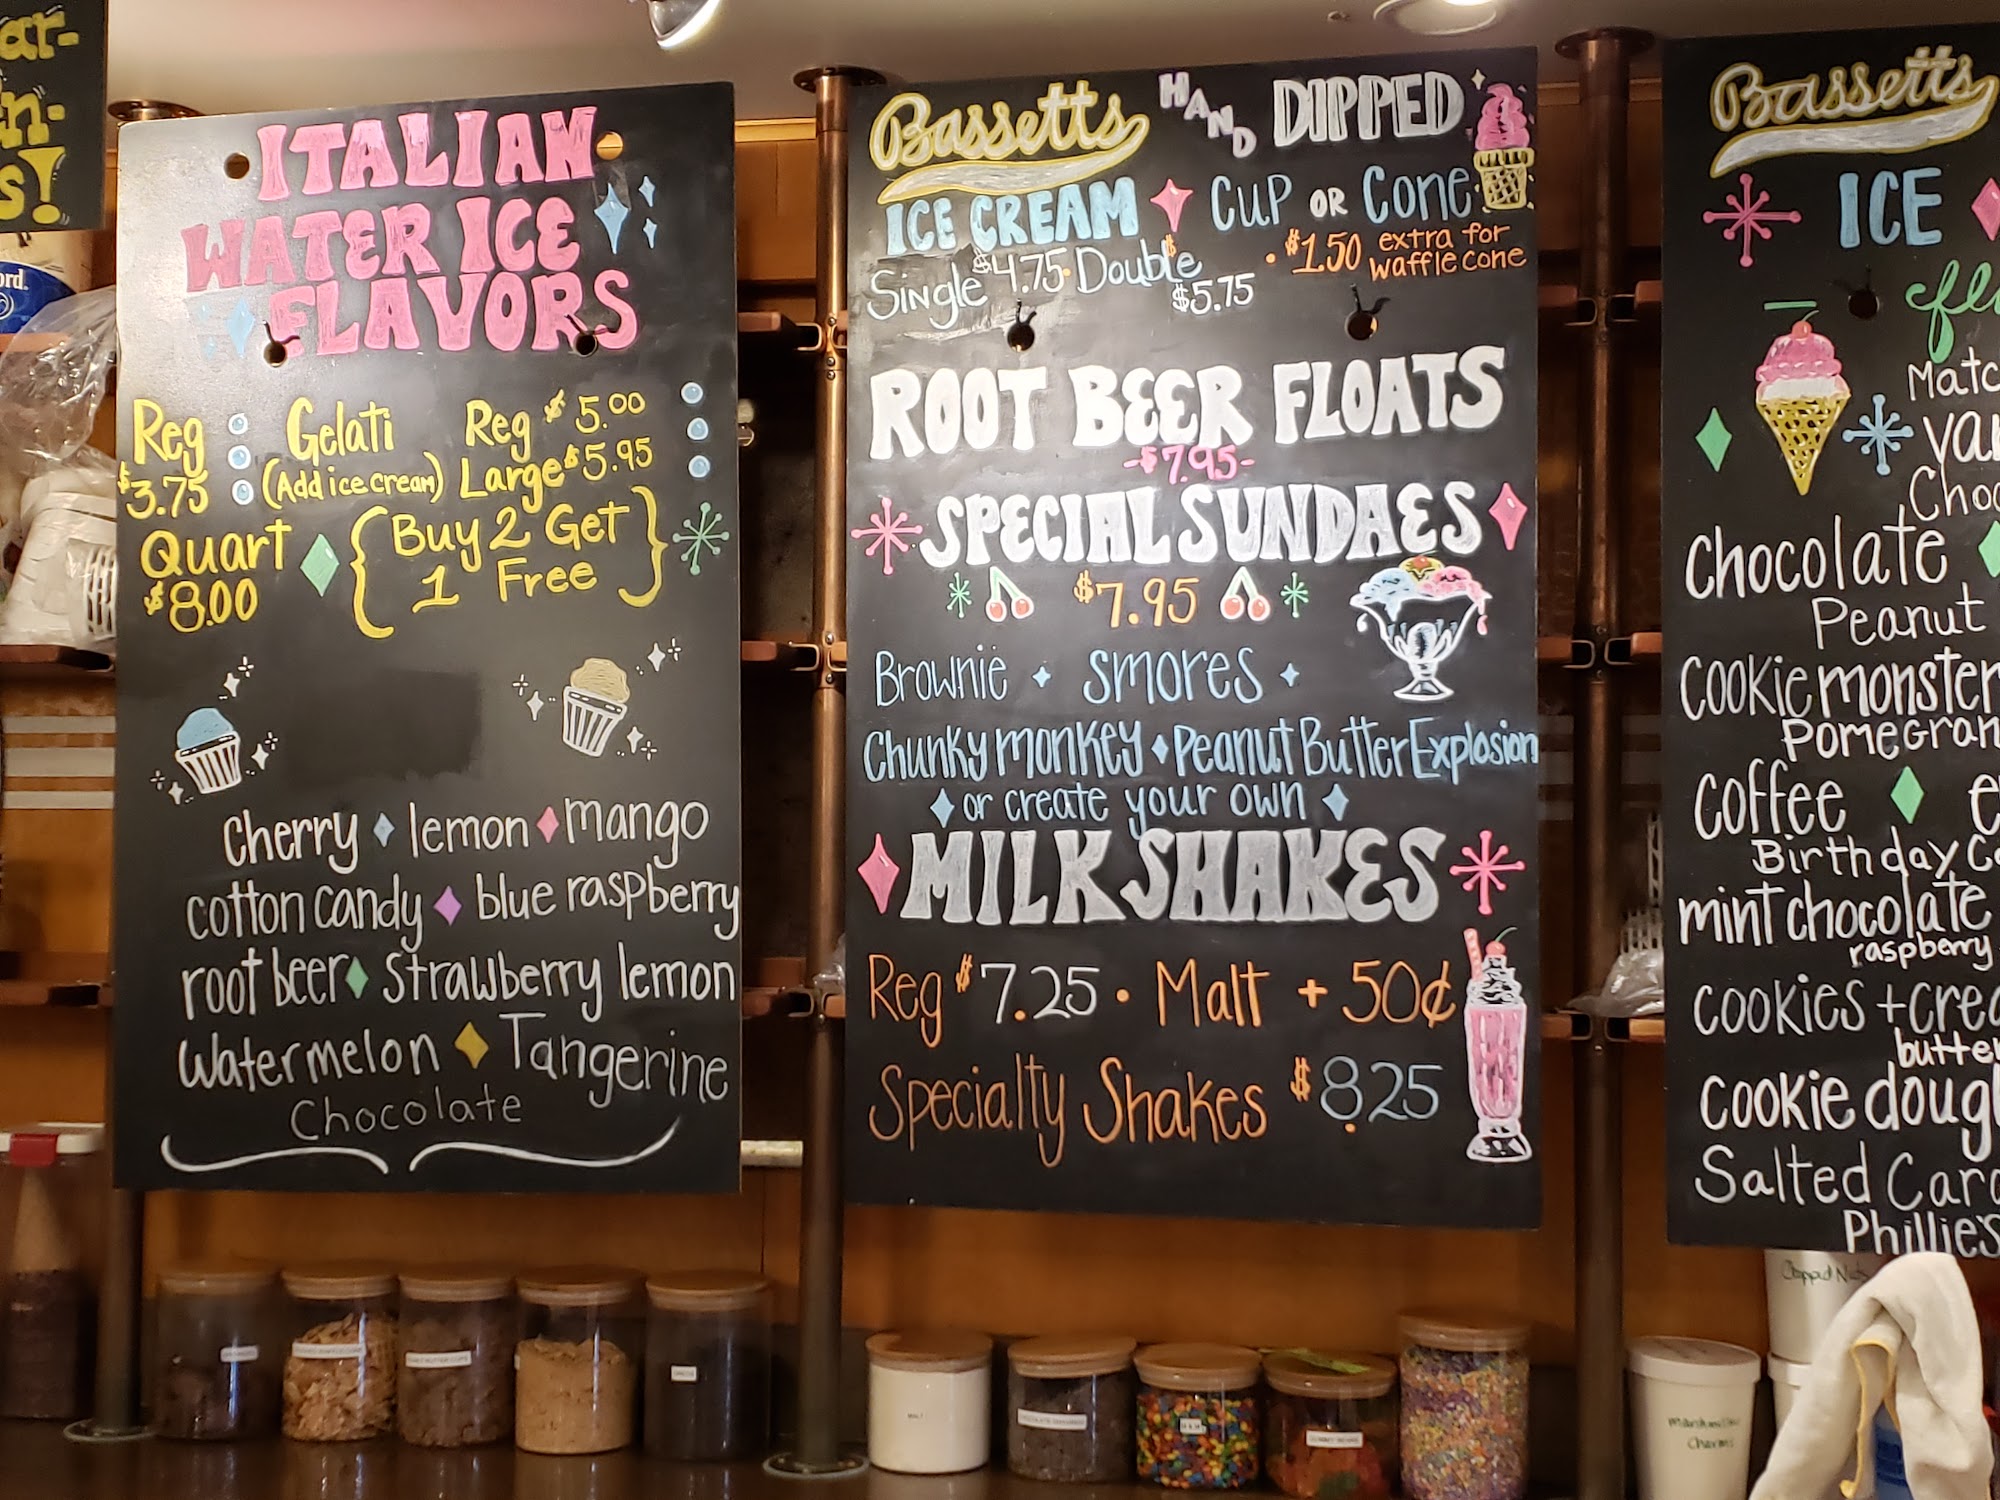 ar-
n-
s!
ord.
ITALIAN
WATER ICE
FLAVORS
Reg
$3.75
Gelati
(Add ice cream)
Reg $5.00
Large $5.95
Quart
$8.00
{Buy 2 Get
1 Free}
cherry lemon mango
cotton candy blue raspberry
root beer strawberry lemon
watermelon Tangerine
Chocolate
Bassetts HAND DIPPED
ICE CREAM CUP OR CONE
Single $4.75 · Double $5.75
· $1.50 extra for
waffle cone
ROOT BEER FLOATS
-$7.95-
SPECIAL SUNDAES
$7.95
Brownie smores
Chunky monkey Peanut Butter Explosion
or create your own
MILKSHAKES
Reg $7.25 · Malt + 50¢
Specialty Shakes $8.25
Bassetts
ICE
fl
Matc
va
Choc
chocolate
Peanut
cookie monster
Pomegran
coffee e
Birthday C
mint chocolate
raspberry
cookies + crea
butte
cookie doug
Salted Car
Phillies
Chopped Nuts
MALT
M & M
GUMMY BEARS
Marshmallow
Charms